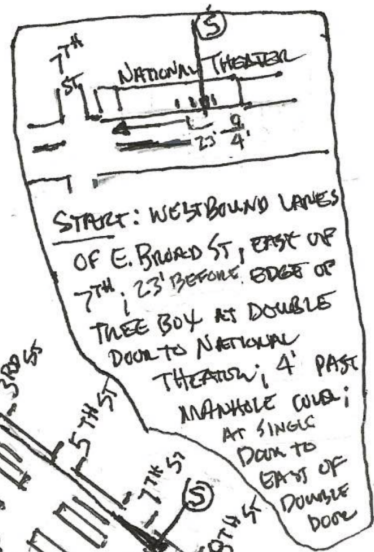 S
7TH
ST
NATIONAL THEATER
23'
4'
START: WESTBOUND LANES
OF E. BROAD ST, EAST OF
7TH; 23' BEFORE EDGE OF
TREE BOX AT DOUBLE
DOOR TO NATIONAL
THEATER; 4' PAST
MANHOLE COVER;
AT SINGLE
DOOR TO
EAST OF
DOUBLE
DOOR
3RD ST
5TH ST
7TH ST
S